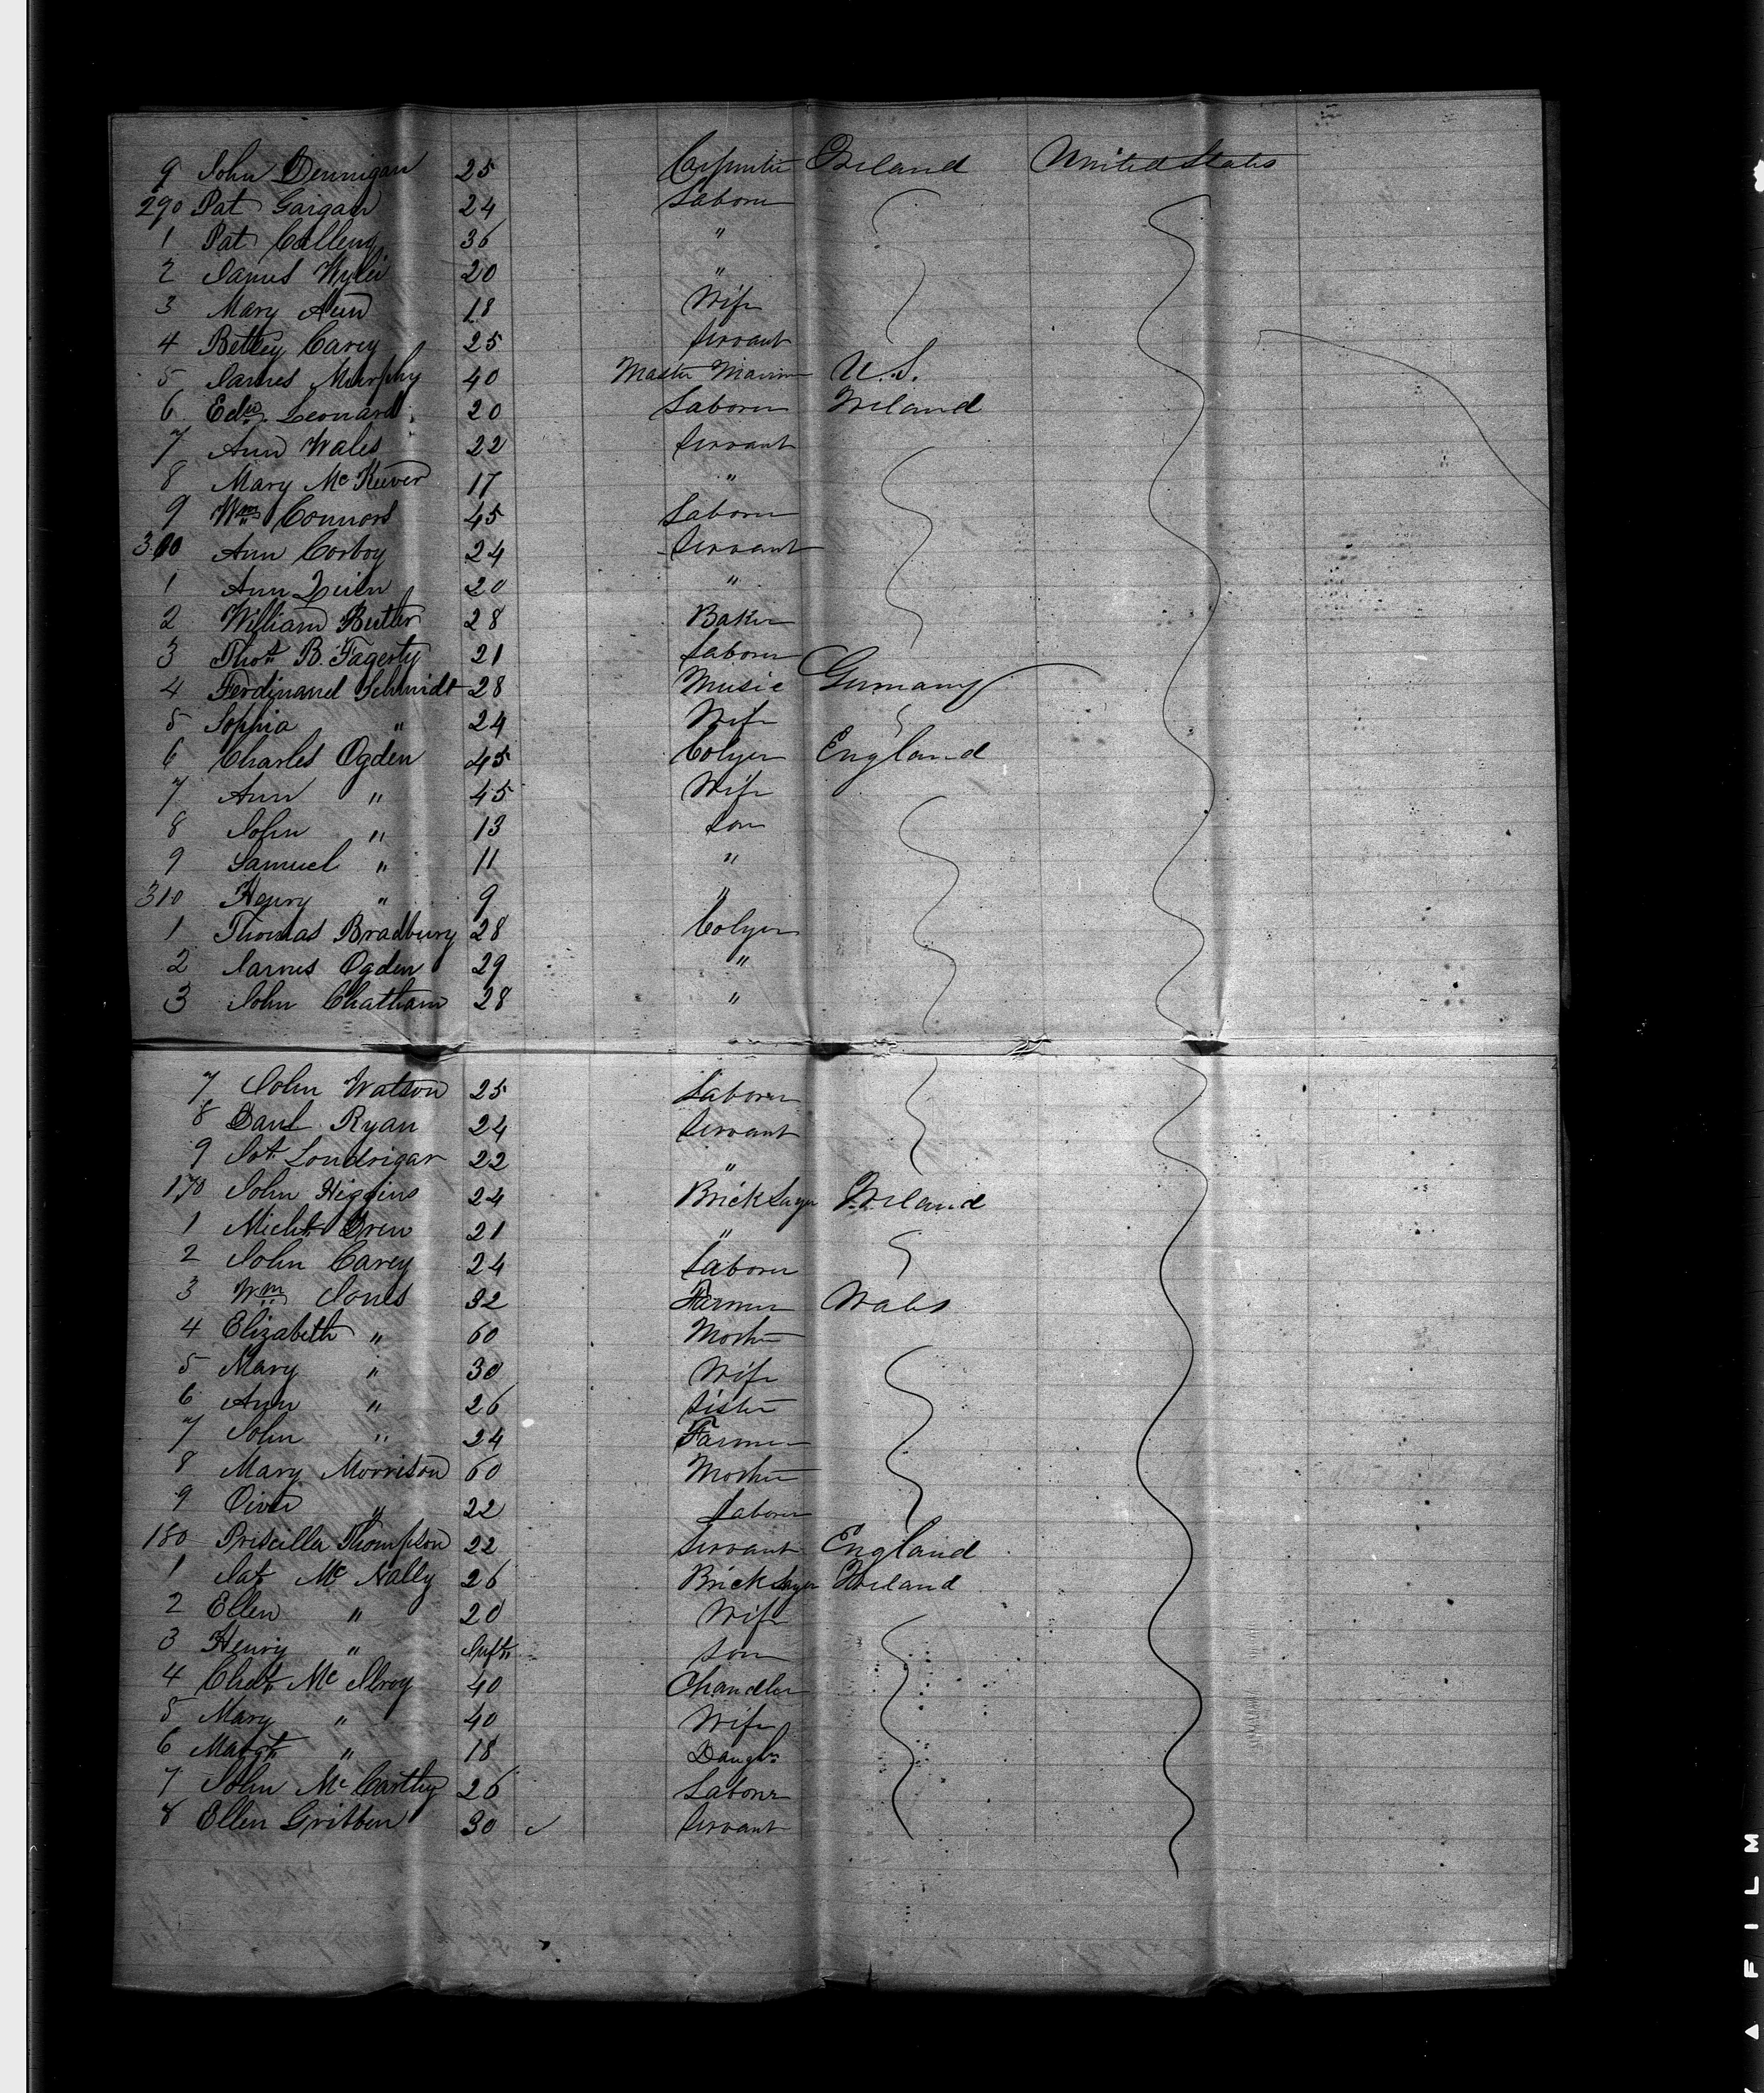 9 John Dennigan 25 Carpenter Ireland United States
290 Pat Gaigan 24 Laborer
1 Pat Cullen 36 "
2 James Wylie 20 "
3 Mary Ann 18 Wife
4 Betsey Carey 25 Servant
5 James Murphy 40 Master Mariner U.S.
6 Edwd. Leonard 20 Laborer Ireland
7 Ann Wales 22 Servant
8 Mary McKeever 17 "
9 Wm Connors 45 Laborer
300 Ann Corboy 24 Servant
1 Ann 20 "
2 William Butler 28 Baker
3 Thos. B. Fagerty 21 Laborer
4 Ferdinand Schmidt 28 Music Germany
5 Sophia " 24 Wife
6 Charles Ogden 45 Colyer England
7 Ann " 45 Wife
8 John " 13 Son
9 Samuel " 11 "
310 Henry " 9 "
1 Thomas Bradbury 28 Colyer
2 James Ogden 29 "
3 John Chatham 28 "
7 John Watson 25 Laborer
8 Danl Ryan 24 Servant
9 Londrigan 22 "
170 John Higgins 24 Brick Layer Ireland
1 Michl. 21 "
2 John Carey 24 Laborer
3 Wm Jones 32 Farmer Wales
4 Elizabeth " 60 Mother
5 Mary " 30 Wife
6 Ann " 26 Sister
7 John " 24 Farmer
8 Mary Morrison 60 Mother
9 " 22 Laborer
180 Priscilla Thompson 22 Servant England
1 Mc Nally 26 Brick Layer Ireland
2 Ellen " 20 Wife
3 Henry " Inft. Son
4 Mc Ilroy 40 Chandler
5 Mary " 40 Wife
6 Margt. " 18 Daughr
7 John McCarthy 26 Laborer
8 Ellen Gribben 30 Servant
FILM